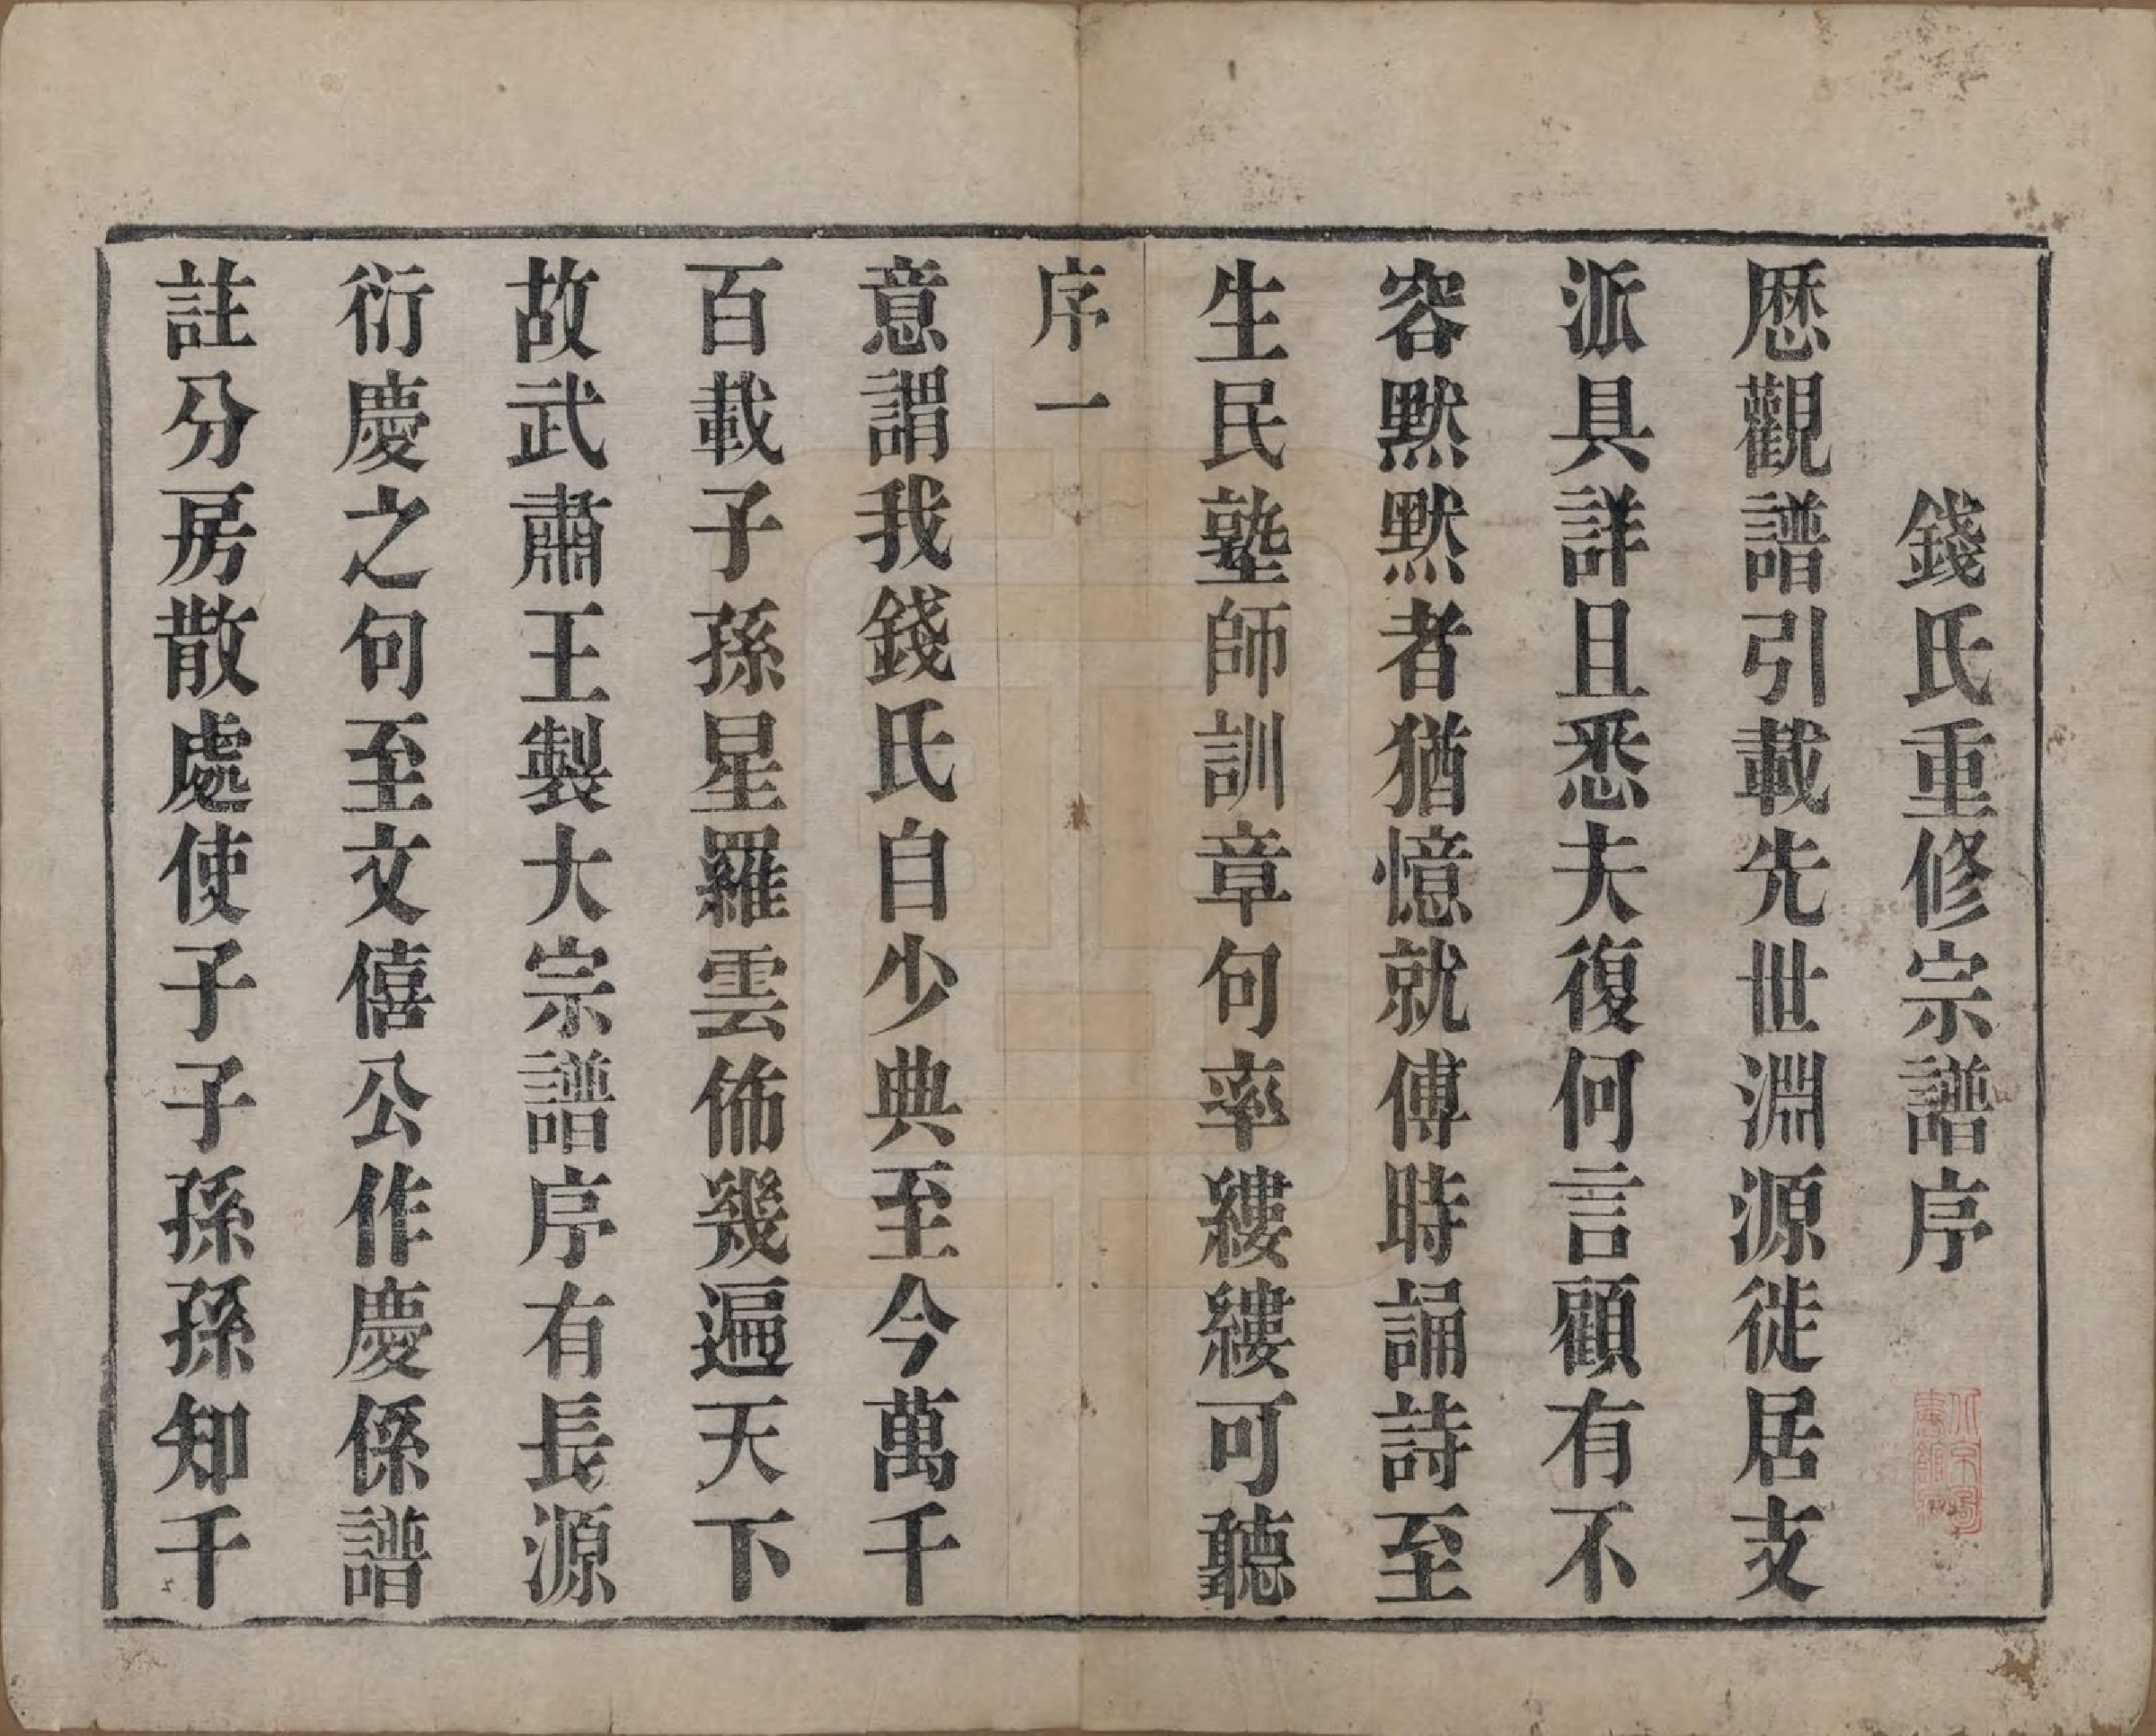 錢氏重修宗譜序
歷觀譜引載先世淵源徙居支
派具詳且悉夫復何言顧有不
容默默者猶憶就傅時誦詩至
生民塾師訓章句率縷縷可聽
序一
意謂我錢氏自少典至今萬千
百載子孫星羅雲佈幾遍天下
故武肅王製大宗譜序有長源
衍慶之句至文僖公作慶係譜
註分房散處使子子孫孫知千